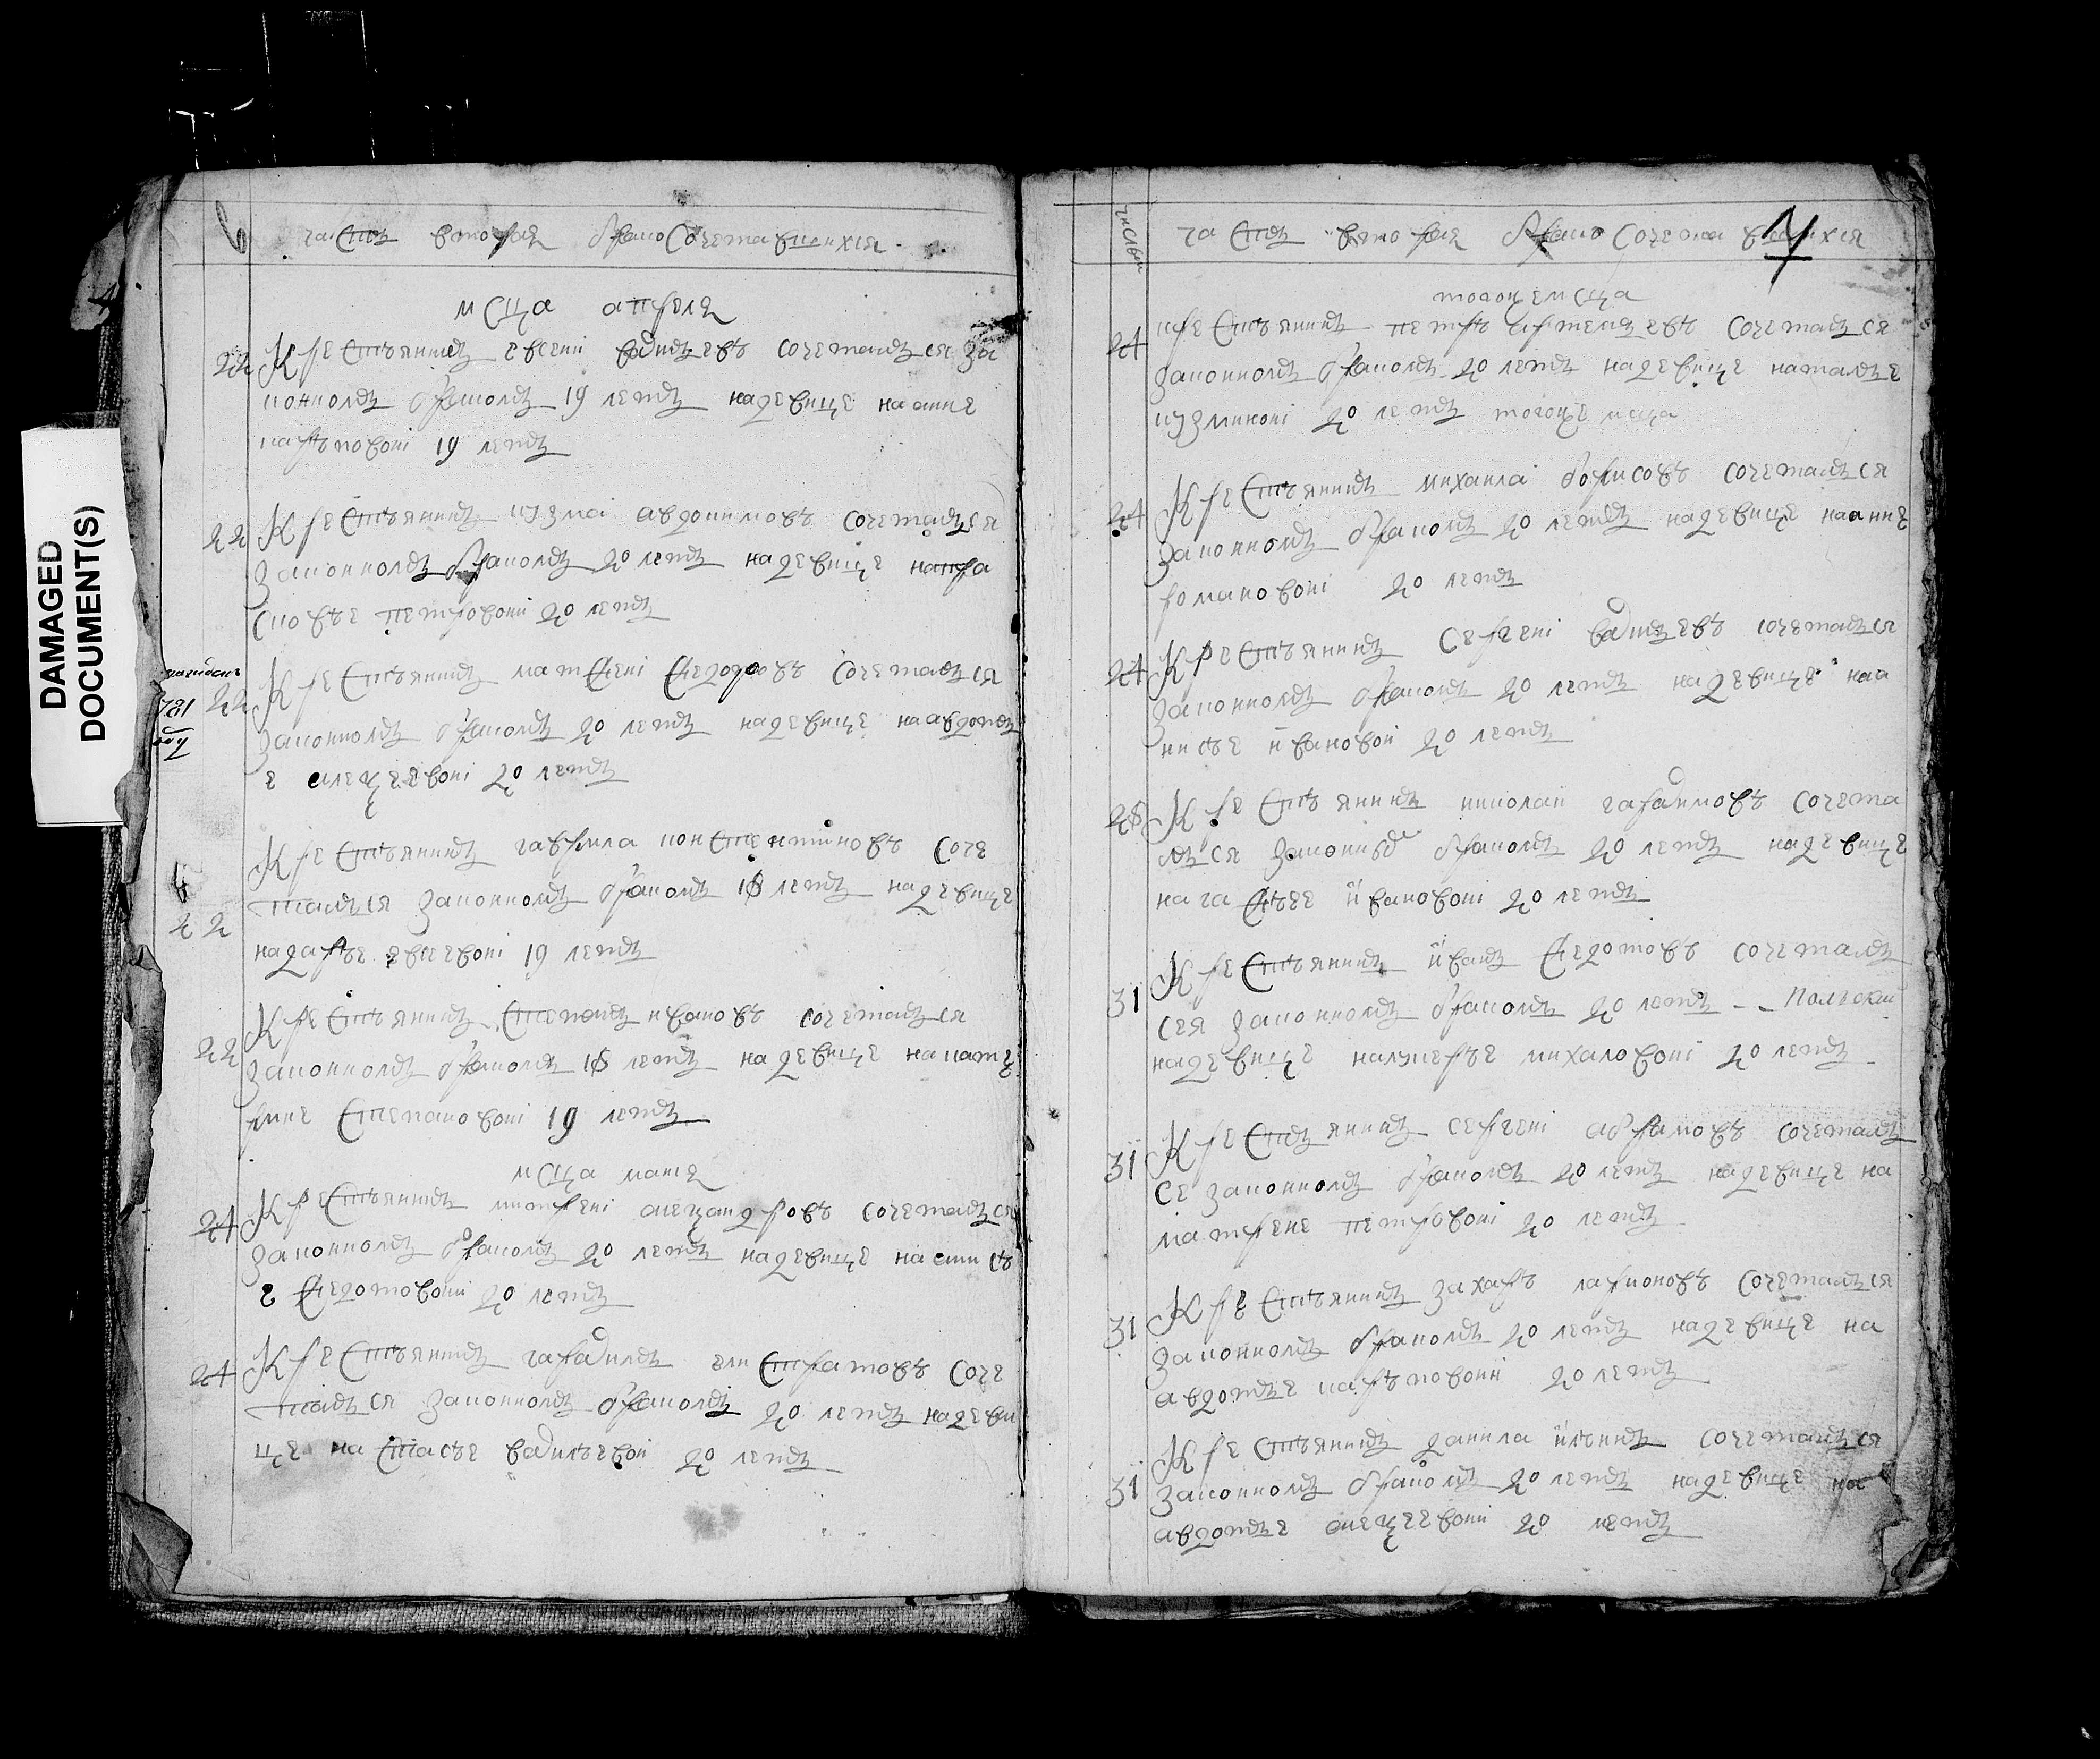 DAMAGED
DOCUMENT(S)
6
часть вторая о бракосочетавшихся
мсца апреля
22 Крестьянинъ евсеи сочетался за
коннымъ бракомъ 19 летъ надевице на анне
карповои 19 летъ
22 Крестьянинъ кузма авдокимовъ сочетался
законнымъ бракомъ 20 летъ надевице напра
сковье петровои 20 летъ
781
году
22 Крестьянинъ матфеи федоровъ сочетался
законнымъ бракомъ 20 летъ надевице наавдоть
е алексеевои 20 летъ
Крестьянинъ гаврила констентиновъ соче
22 тался законнымъ бракомъ 18 летъ надевице
надарье евсеевои 19 летъ
Крестьянинъ степанъ ивановъ сочетался
22 законнымъ бракомъ 18 летъ надевице накате
рине степановои 19 летъ
мсца маия
24 Крестьянинъ митреи александровъ сочетался
законнымъ бракомъ 20 летъ надевице на анись
е федотовои 20 летъ
24 Крестьянинъ елистратовъ соче
тался законнымъ бракомъ 20 летъ надеви
це на стасье васильевои 20 летъ
7
число
часть вторая о бракосочетавшихся
тогожемсца
24 крестьянинъ петръ артемьевъ сочетался
законнымъ бракомъ 20 летъ надевице наталье
кузминои 20 летъ тогоже мсца
24 Крестьянинъ михаила борисовъ сочетался
законнымъ бракомъ 20 летъ надевице наанне
романовои 20 летъ
24 Крестьянинъ сергеи сочетался
законнымъ бракомъ 20 летъ надевице наа
нисье ивановои 20 летъ
28 Крестьянинъ николаи гарасимовъ сочета
лся законнымъ бракомъ 20 летъ надевице
на ивановои 20 летъ
31 Крестьянинъ иванъ федотовъ сочеталъ
сея законнымъ бракомъ 20 летъ -- Полской
надевице налукерье михаловои 20 летъ
31 Крестьянинъ сергеи абрамовъ сочеталъ
се законнымъ бракомъ 20 летъ надевице на
матрене петровои 20 летъ
31 Крестьянинъ захаръ ларионовъ сочетался
законнымъ бракомъ 20 летъ надевице на
авдотье карповои 20 летъ
31 Крестьянинъ данила ильинъ сочетался
законнымъ бракомъ 20 летъ надевице на
авдотье алексеевои 20 летъ